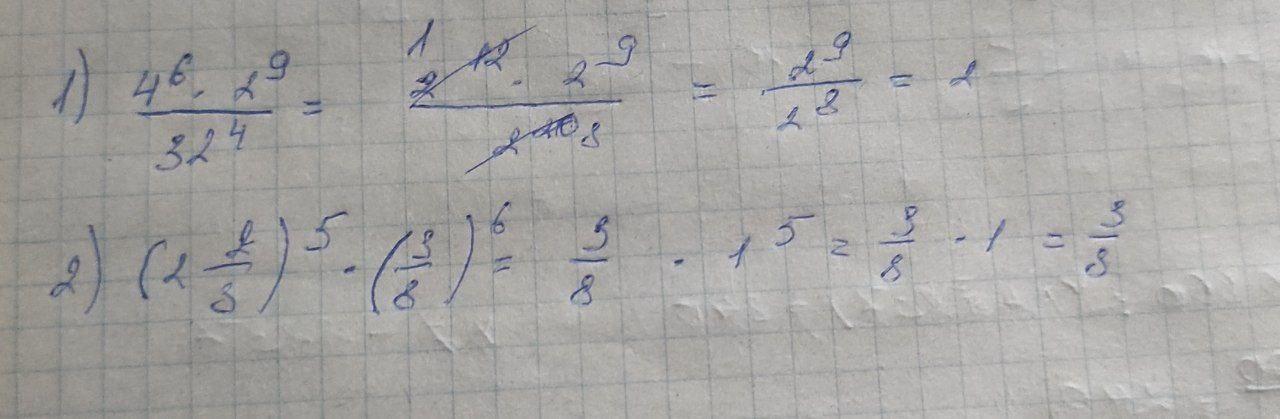 1) (4^6 · 2^9)/(32^4) = (1 2^12 · 2^9)/(2^20 8) = 2^9/2^8 = 2
2) (2 2/3)^5 · (3/8)^6 = 3/8 · 1^5 = 3/8 · 1 = 3/8